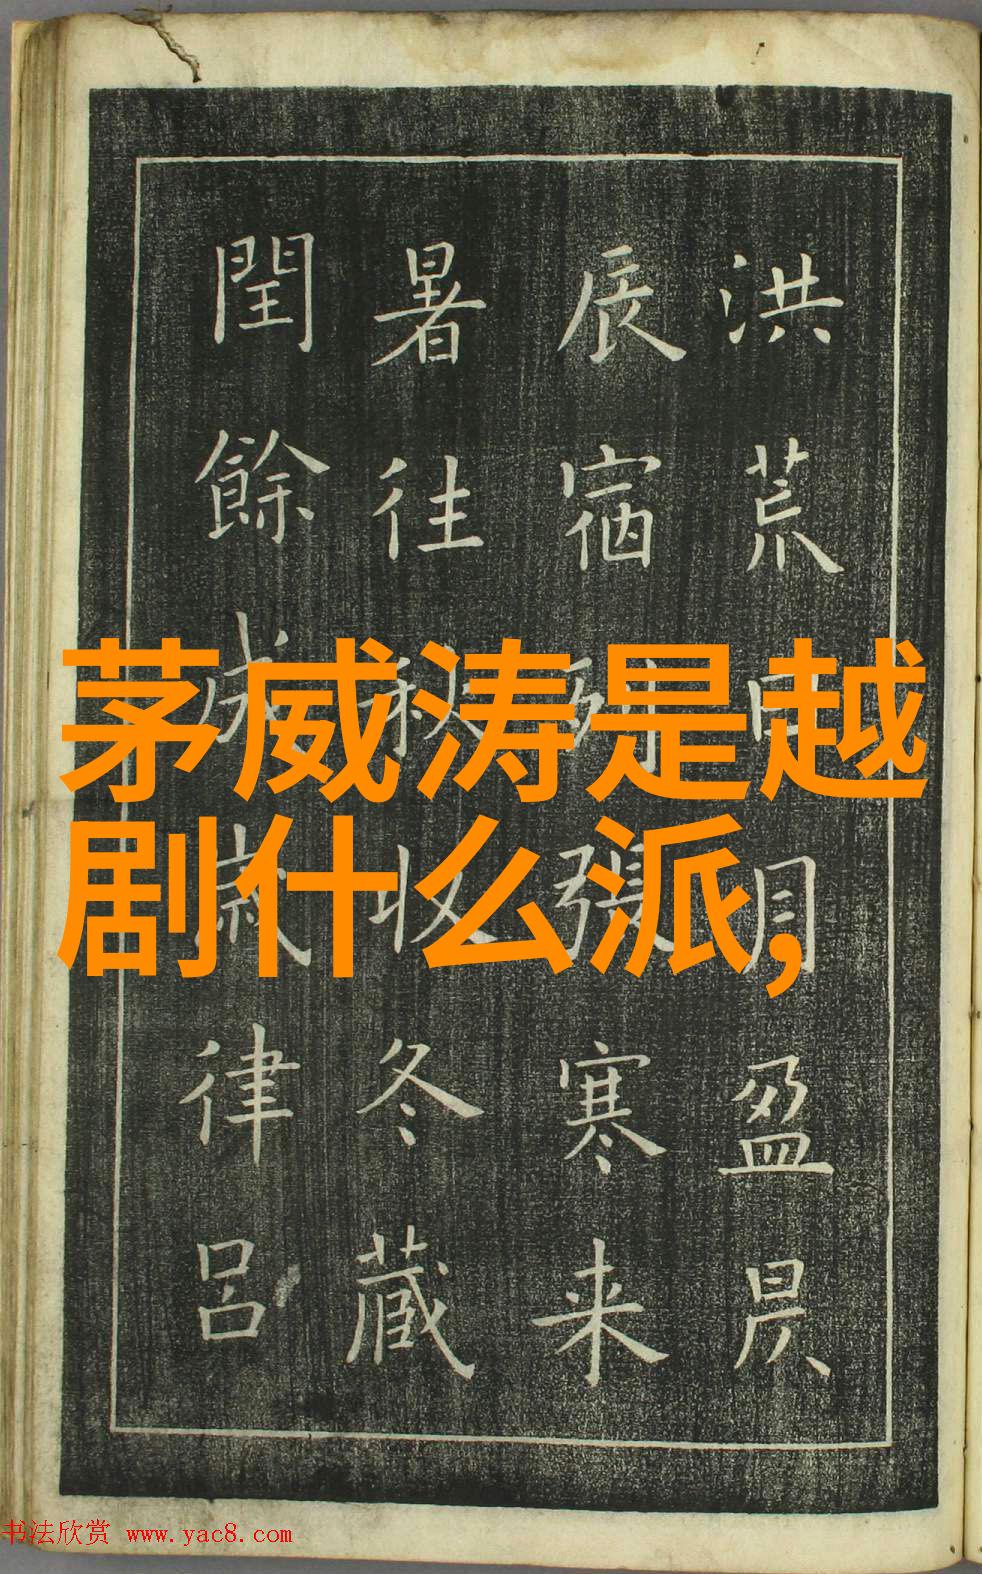 洪荒日月盈昃
辰宿列張寒来
暑往秋收冬蔵
閏餘成歲律呂
茅威涛是越
剧什么派,
书法欣赏 www.yac8.com